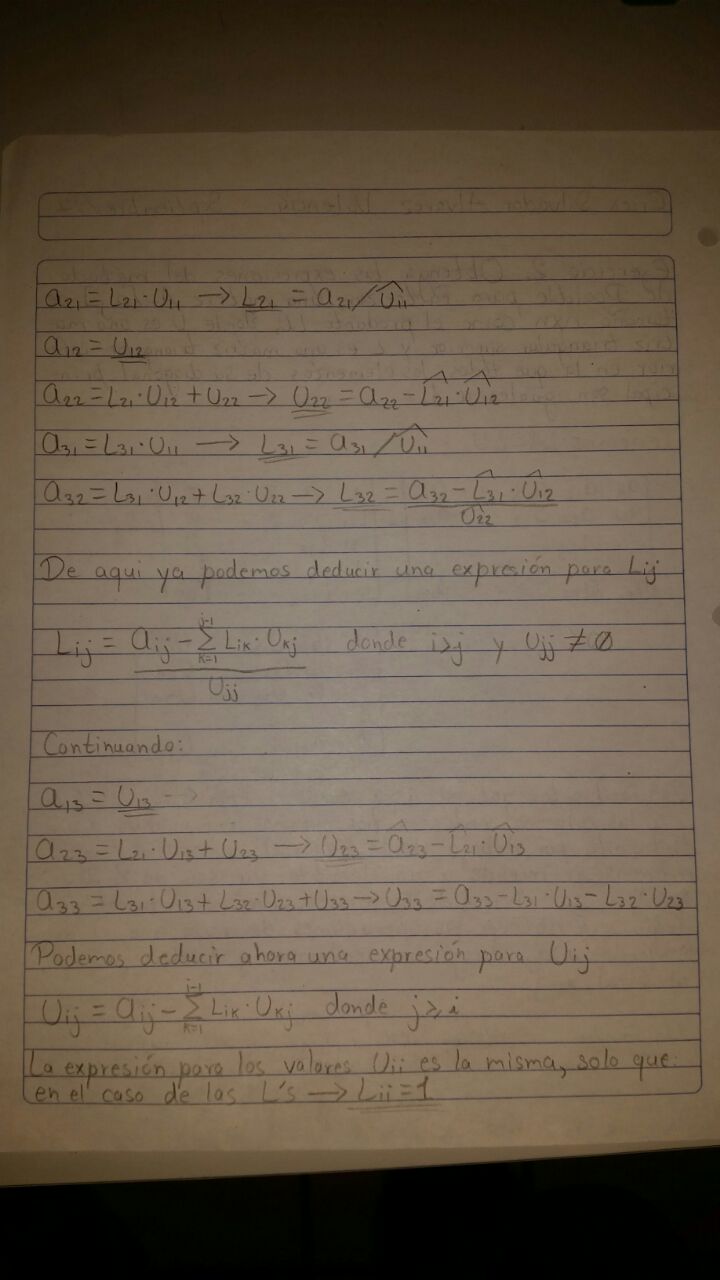 a₂₁ = L₂₁·U₁₁ → L₂₁ = a₂₁/U₁₁
a₁₂ = U₁₂
a₂₂ = L₂₁·U₁₂ + U₂₂ → U₂₂ = a₂₂ - L₂₁·U₁₂
a₃₁ = L₃₁·U₁₁ → L₃₁ = a₃₁/U₁₁
a₃₂ = L₃₁·U₁₂ + L₃₂·U₂₂ → L₃₂ = a₃₂ - L₃₁·U₁₂
U₂₂
De aqui ya podemos deducir una expresión para Lij
j-1
Lij = aij - Σ Lik·Ukj donde i>j y Ujj ≠ 0
k=1
Ujj
Continuando:
a₁₃ = U₁₃
a₂₃ = L₂₁·U₁₃ + U₂₃ → U₂₃ = a₂₃ - L₂₁·U₁₃
a₃₃ = L₃₁·U₁₃ + L₃₂·U₂₃ + U₃₃ → U₃₃ = a₃₃ - L₃₁·U₁₃ - L₃₂·U₂₃
Podemos deducir ahora una expresión para Uij
i-1
Uij = aij - Σ Lik·Ukj donde j≥i
k=1
La expresión para los valores Uii es la misma, solo que
en el caso de las L's → Lii = 1